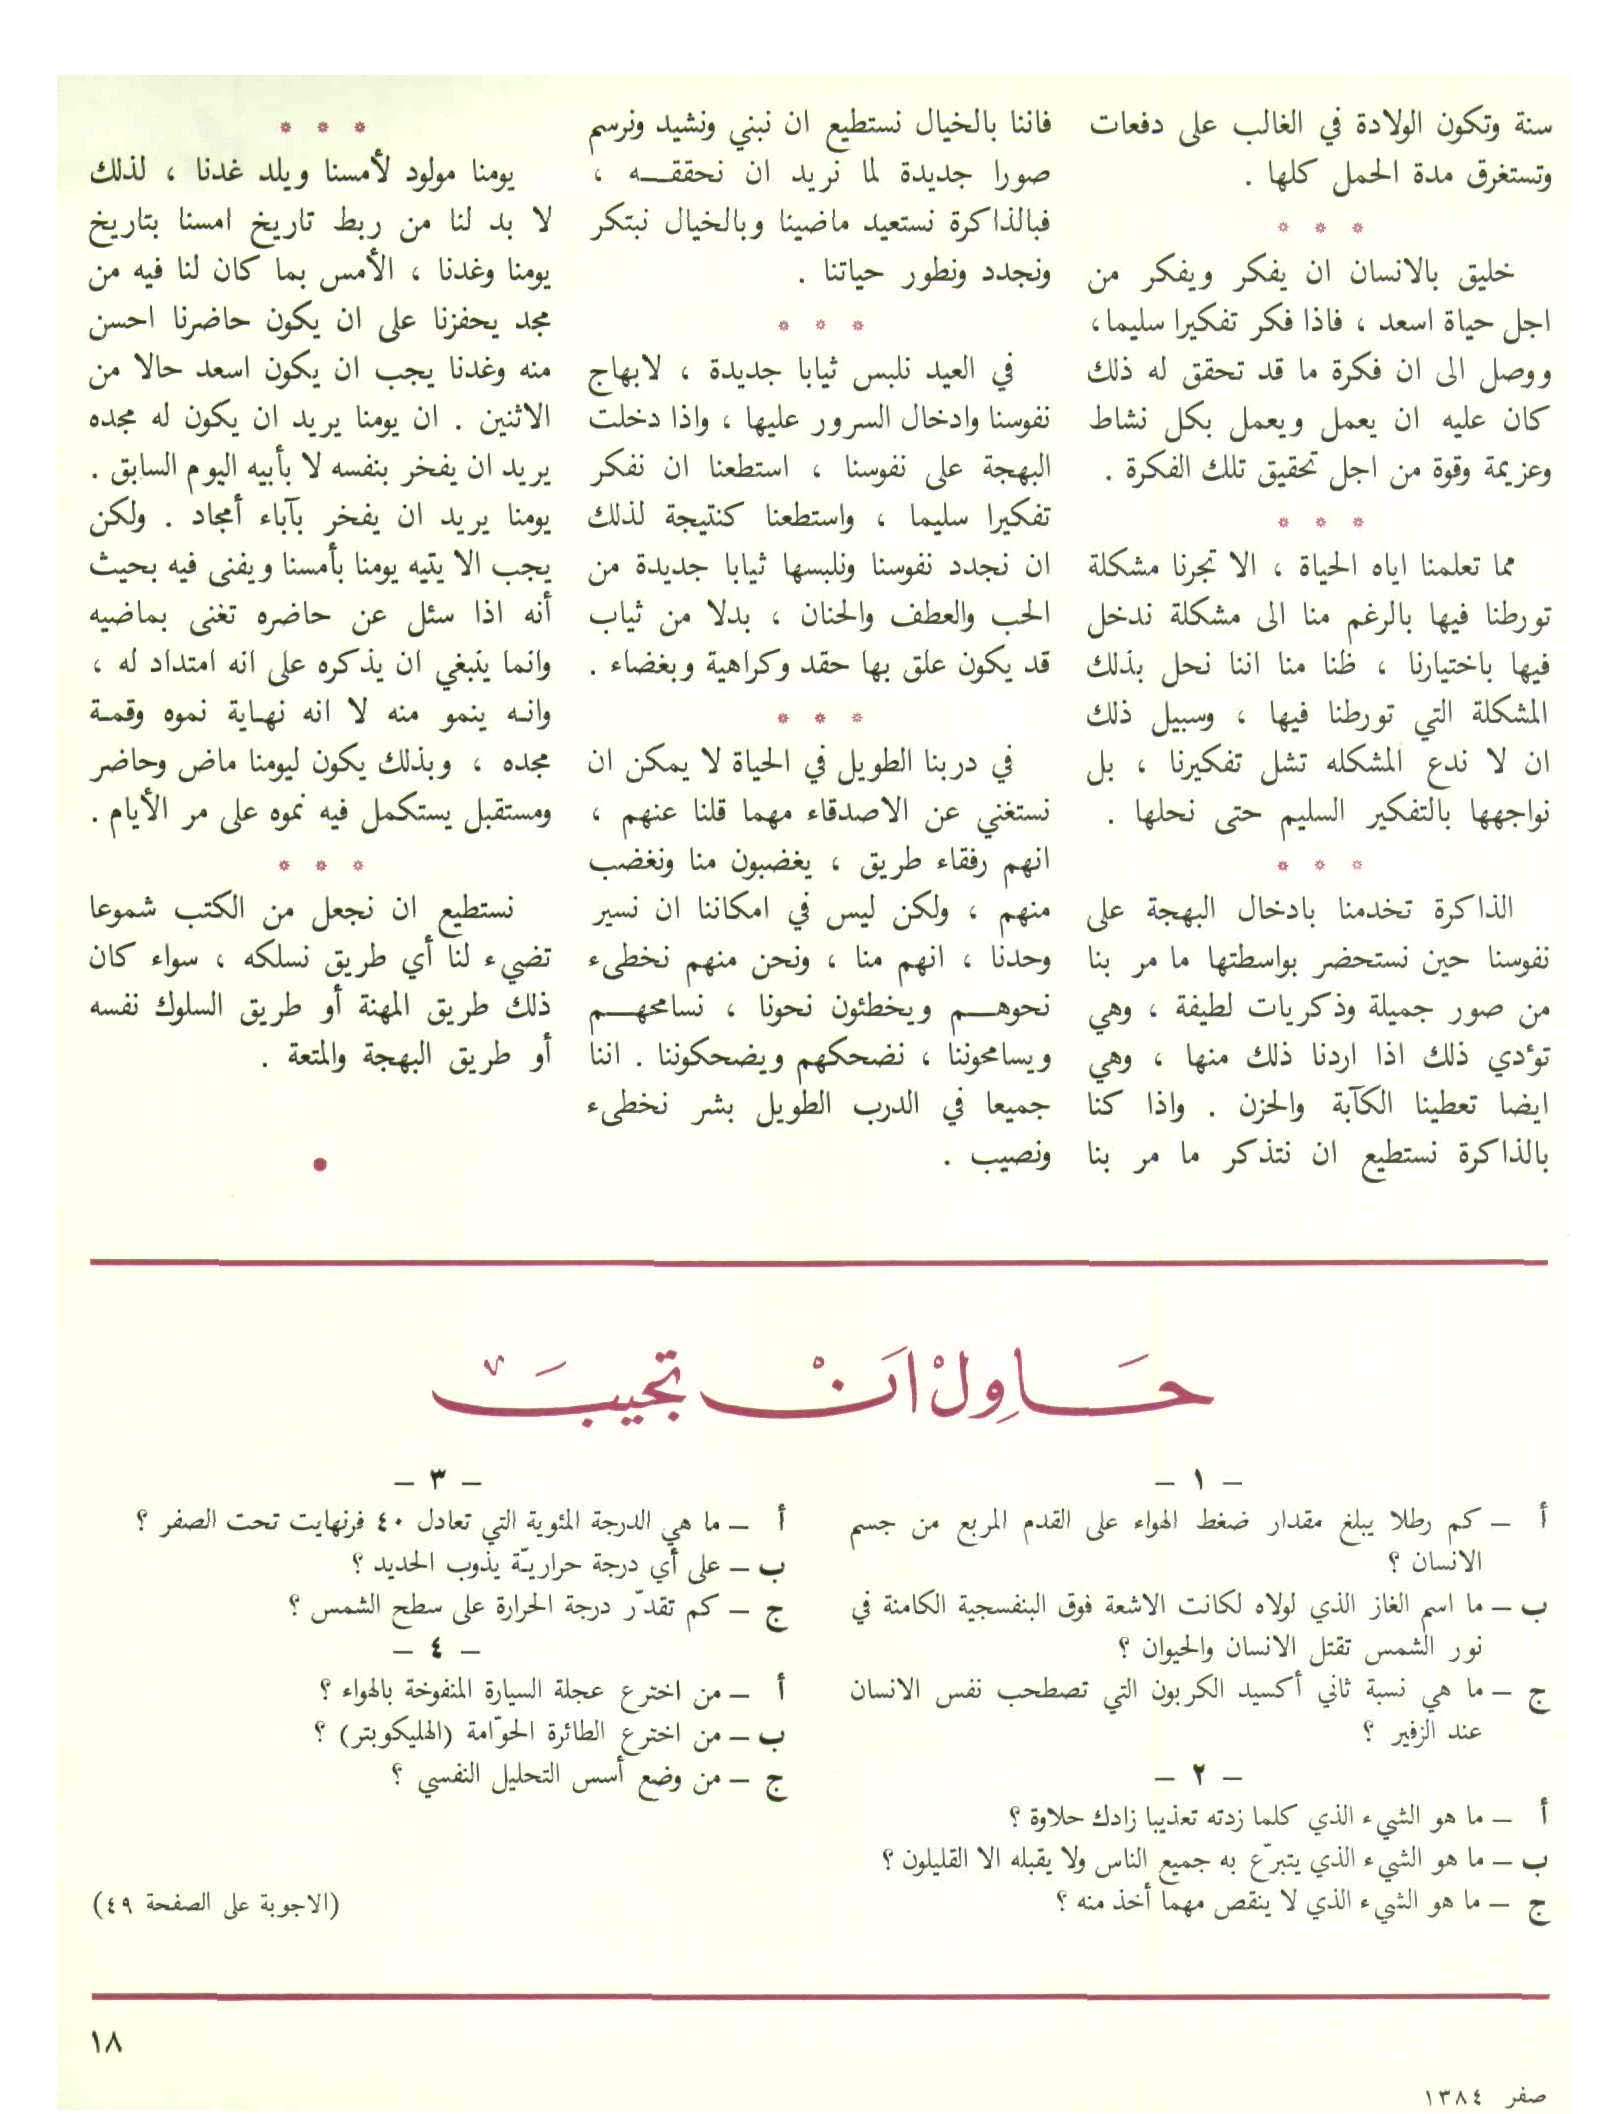 سنة وتكون الولادة في الغالب على دفعات
وتستغرق مدة الحمل كلها .
* * *
خليق بالانسان ان يفكر ويفكر من
اجل حياة اسعد ، فاذا فكر تفكيرا سليما،
ووصل الى ان فكرة ما قد تحقق له ذلك
كان عليه ان يعمل ويعمل بكل نشاط
وعزيمة وقوة من اجل تحقيق تلك الفكرة .
* * *
مما تعلمنا اياه الحياة ، الا تجرنا مشكلة
تورطنا فيها بالرغم منا الى مشكلة ندخل
فيها باختيارنا ، ظنا منا اننا نحل بذلك
المشكلة التي تورطنا فيها ، وسبيل ذلك
ان لا ندع المشكله تشل تفكيرنا ، بل
نواجهها بالتفكير السليم حتى نحلها .
* * *
الذاكرة تخدمنا بادخال البهجة على
نفوسنا حين نستحضر بواسطتها ما مر بنا
من صور جميلة وذكريات لطيفة ، وهي
تؤدي ذلك اذا اردنا ذلك منها ، وهي
ايضا تعطينا الكآبة والحزن . واذا كنا
بالذاكرة نستطيع ان نتذكر ما مر بنا
فاننا بالخيال نستطيع ان نبني ونشيد ونرسم
صورا جديدة لما نريد ان نحققـــه ،
فبالذاكرة نستعيد ماضينا وبالخيال نبتكر
ونجدد ونطور حياتنا .
* * *
في العيد نلبس ثيابا جديدة ، لابهاج
نفوسنا وادخال السرور عليها ، واذا دخلت
البهجة على نفوسنا ، استطعنا ان نفكر
تفكيرا سليما ، واستطعنا كنتيجة لذلك
ان نجدد نفوسنا ونلبسها ثيابا جديدة من
الحب والعطف والحنان ، بدلا من ثياب
قد يكون علق بها حقد وكراهية وبغضاء .
* * *
في دربنا الطويل في الحياة لا يمكن ان
نستغني عن الاصدقاء مهما قلنا عنهم ،
انهم رفقاء طريق ، يغضبون منا ونغضب
منهم ، ولكن ليس في امكاننا ان نسير
وحدنا ، انهم منا ، ونحن منهم نخطىء
نحوهـــم ويخطئون نحونا ، نسامحهـــم
ويسامحوننا ، نضحكهم ويضحكوننا . اننا
جميعا في الدرب الطويل بشر نخطىء
ونصيب .
* * *
يومنا مولود لأمسنا ويلد غدنا ، لذلك
لا بد لنا من ربط تاريخ امسنا بتاريخ
يومنا وغدنا ، الأمس بما كان لنا فيه من
مجد يحفزنا على ان يكون حاضرنا احسن
منه وغدنا يجب ان يكون اسعد حالا من
الاثنين . ان يومنا يريد ان يكون له مجده
يريد ان يفخر بنفسه لا بأبيه اليوم السابق .
يومنا يريد ان يفخر بآباء أمجاد . ولكن
يجب الا يتيه يومنا بأمسنا ويفنى فيه بحيث
أنه اذا سئل عن حاضره تغنى بماضيه
وانما ينبغي ان يذكره على انه امتداد له ،
وانـه ينمو منه لا انه نهـاية نموه وقمـة
مجده ، وبذلك يكون ليومنا ماض وحاضر
ومستقبل يستكمل فيه نموه على مر الأيام .
* * *
نستطيع ان نجعل من الكتب شموعا
تضيء لنا أي طريق نسلكه ، سواء كان
ذلك طريق المهنة أو طريق السلوك نفسه
أو طريق البهجة والمتعة .
حَـاوِلْ اَنْ تجيبَ
– ١ –
أ – كم رطلا يبلغ مقدار ضغط الهواء على القدم المربع من جسم
الانسان ؟
ب – ما اسم الغاز الذي لولاه لكانت الاشعة فوق البنفسجية الكامنة في
نور الشمس تقتل الانسان والحيوان ؟
ج – ما هي نسبة ثاني أكسيد الكربون التي تصطحب نفس الانسان
عند الزفير ؟
– ٢ –
أ – ما هو الشيء الذي كلما زدته تعذيبا زادك حلاوة ؟
ب – ما هو الشيء الذي يتبرّع به جميع الناس ولا يقبله الا القليلون ؟
ج – ما هو الشيء الذي لا ينقص مهما أخذ منه ؟
– ٣ –
أ – ما هي الدرجة المئوية التي تعادل ٤٠ فرنهايت تحت الصفر ؟
ب – على أي درجة حراريّة يذوب الحديد ؟
ج – كم تقدّر درجة الحرارة على سطح الشمس ؟
– ٤ –
أ – من اخترع عجلة السيارة المنفوخة بالهواء ؟
ب – من اخترع الطائرة الحوّامة (الهليكوبتر) ؟
ج – من وضع أسس التحليل النفسي ؟
(الاجوبة على الصفحة ٤٩)
١٨
صفر ١٣٨٤